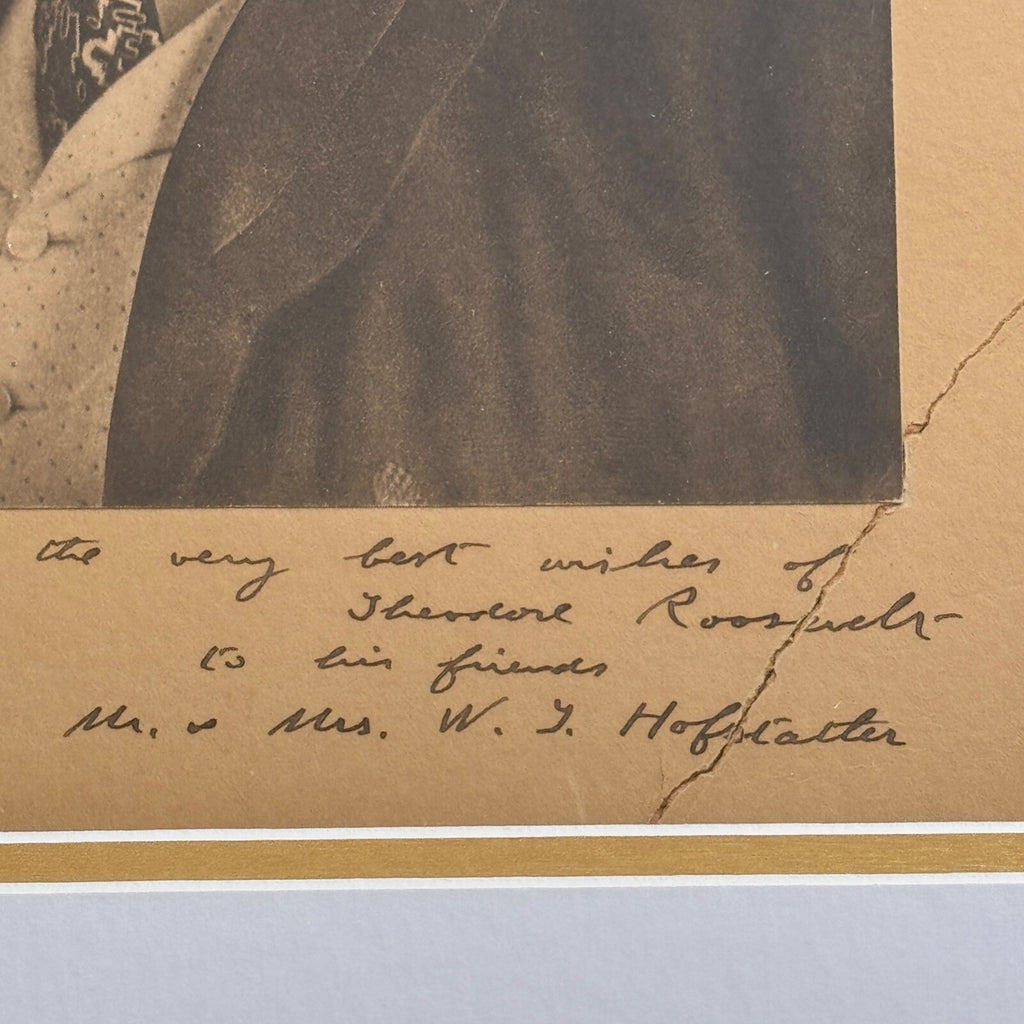 the very best wishes of
Theodore Roosevelt
to his friends
Mr. & Mrs. W. T. Hofstatter